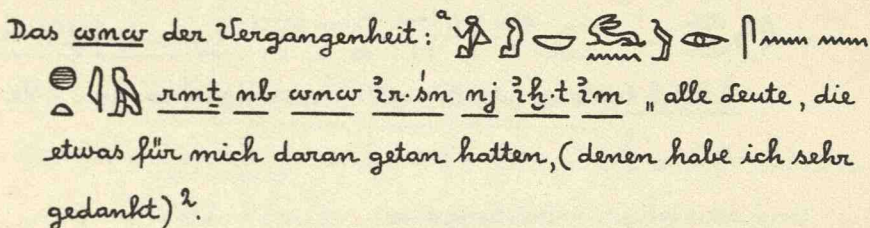 Das wnw der Vergangenheit: a 𓀀𓁐𓎟𓃹𓈖𓅱𓁹𓋴𓈖𓈖
𓐍𓏏𓇋𓅓 rmṯ nb wnw ỉr·śn nj ỉḫ·t ỉm „alle Leute, die
etwas für mich daran getan hatten, (denen habe ich sehr
gedankt) 2.